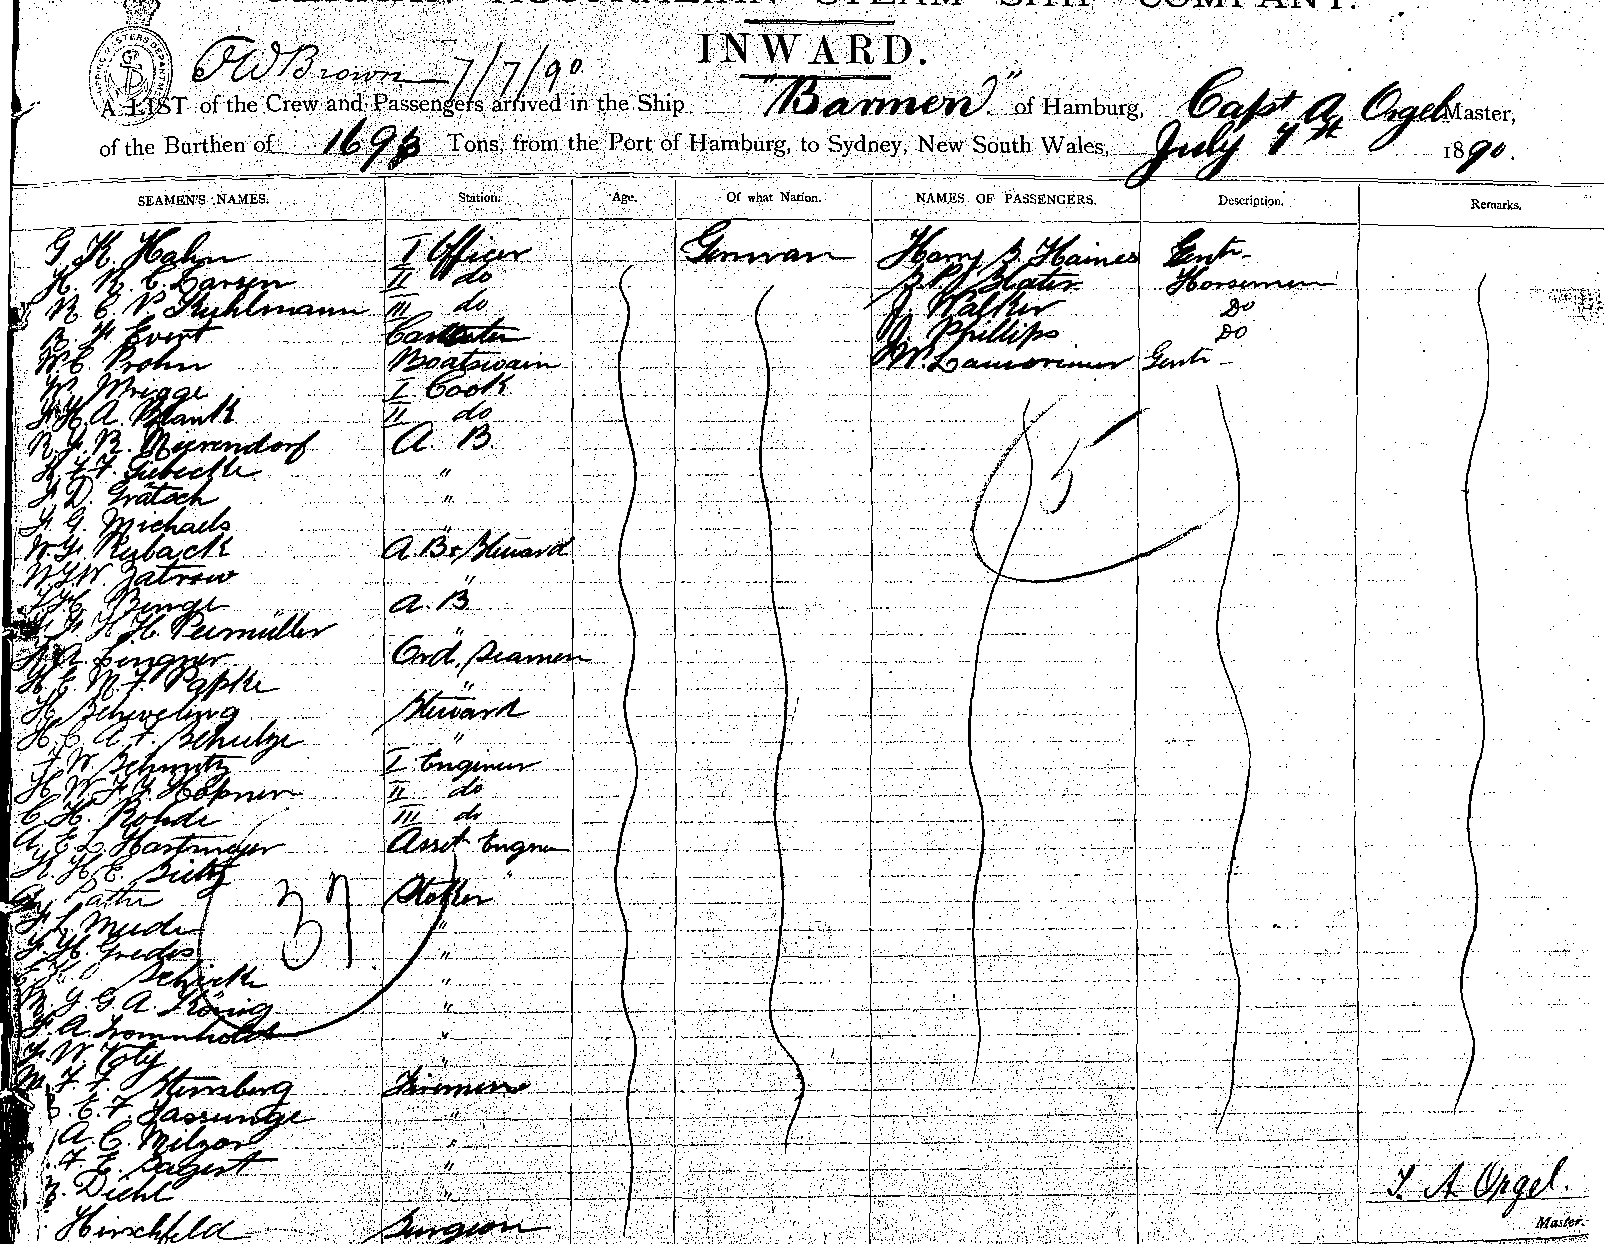 GERMAN AUSTRALIAN STEAM SHIP COMPANY.
INWARD.
F W Brown 7/7/90
A LIST of the Crew and Passengers arrived in the Ship "Barmen" of Hamburg, Capt A Orgel Master,
of the Burthen of 1693 Tons, from the Port of Hamburg, to Sydney, New South Wales, July 7th 1890.
SEAMEN'S NAMES. Station. Age. Of what Nation. NAMES OF PASSENGERS. Description. Remarks.
G. K. Hahn I Officer German Harry B. Haines Gentn
H. N. C. Larsen II do Slater Horsemen
N. C. P. Kuhlmann III do J. Walker Do
Evert J. Phillips Do
W. C. Prohn Boatswain W. Lamorimer Gentn
W. Mrigge I Cook
J. H. A. Blank II do
A. B.
"
J. D. Grätsch "
J. G. Michaels "
Ruback A. B & Steward
Zatrow "
Binge A. B
H. Permüller "
Lingner Ord. Seamen
H. E. M. F. Papke "
H. Scheveling Steward
H. C. A. F. Schulze "
J. W. Schmitz I Engineer
H. W. F. J. Höpner II do
C. H. Rohde III do
A. E. L. Hartmeyer Asst Engner
"
Pathe Stoker
Mude "
J. H. Gredis "
Schicke "
G. A. König "
J. A. Trommholdt "
J. W. Toly "
F. F. Sternberg Firemen
E. F. Sassunge "
A. C. Melzon "
F. E. Salgert "
Diehl "
Hirschfeld Surgeon
5
37
T. A. Orgel.
Master.